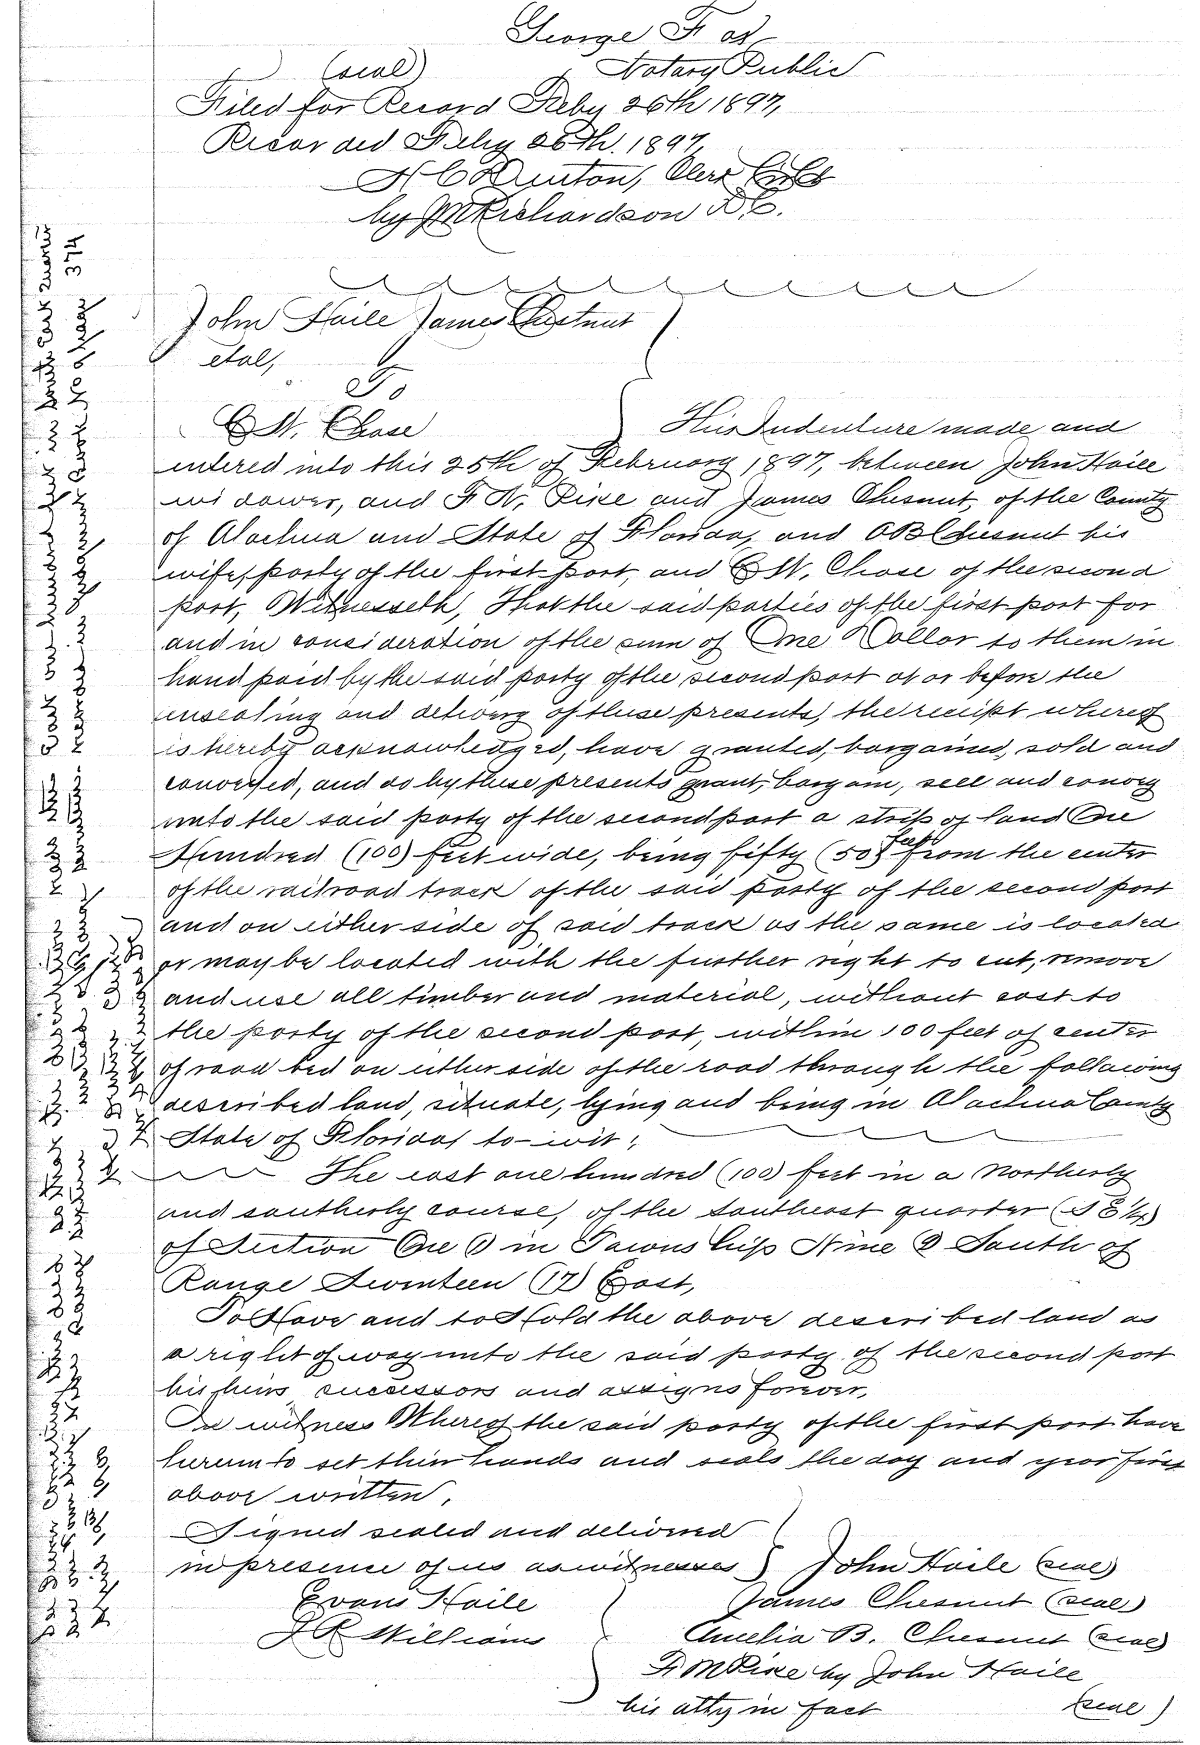 George F
(seal) Notary Public
Filed for Record Feby 26th 1897,
Recorded Feby 26th. 1897,
H C Denton, Clerk
by M Richardson D.C.
374
John Haile James Chestnut
etal,
To
E W. Chase This Indenture made and
entered into this 25th of February 1897, between John Haile
widower, and F W. Pike and James Chesnut, of the County
of Alachua and State of Florida, and A B Chesnut his
wife, party of the first part, and E W. Chase of the second
part, Witnesseth, That the said parties of the first part for
and in consideration of the sum of One Dollar to them in
hand paid by the said party of the second part at or before the
ensealing and delivery of these presents, the receipt whereof
is hereby acknowledged, have granted, bargained, sold and
conveyed, and do by these presents grant, bargain, sell and convey
unto the said party of the second part a strip of land One
Hundred (100) feet wide, being fifty (50) feet from the center
of the railroad track of the said party of the second part
and on either side of said track as the same is located
or may be located with the further right to cut, remove
and use all timber and material, without cost to
the party of the second part, within 100 feet of center
of road bed on either side of the road through the following
described land, situate, lying and being in Alachua County
State of Florida, to-wit;
The east one hundred (100) feet in a Northerly
and southerly course, of the Southeast quarter (S E 1/4)
of Section One (1) in Township Nine 9 South of
Range Seventeen (17) East,
To Have and to Hold the above described land as
a right of way unto the said party of the second part
his heirs, successors and assigns forever,
In witness Whereof the said party of the first part have
hereunto set their hands and seals the day and year first
above written.
Signed sealed and delivered
in presence of us as witnesses John Haile (seal)
Evans Haile James Chesnut (seal)
J R Williams Amelia B. Chesnut (seal)
F M Pike by John Haile
his atty in fact (seal)